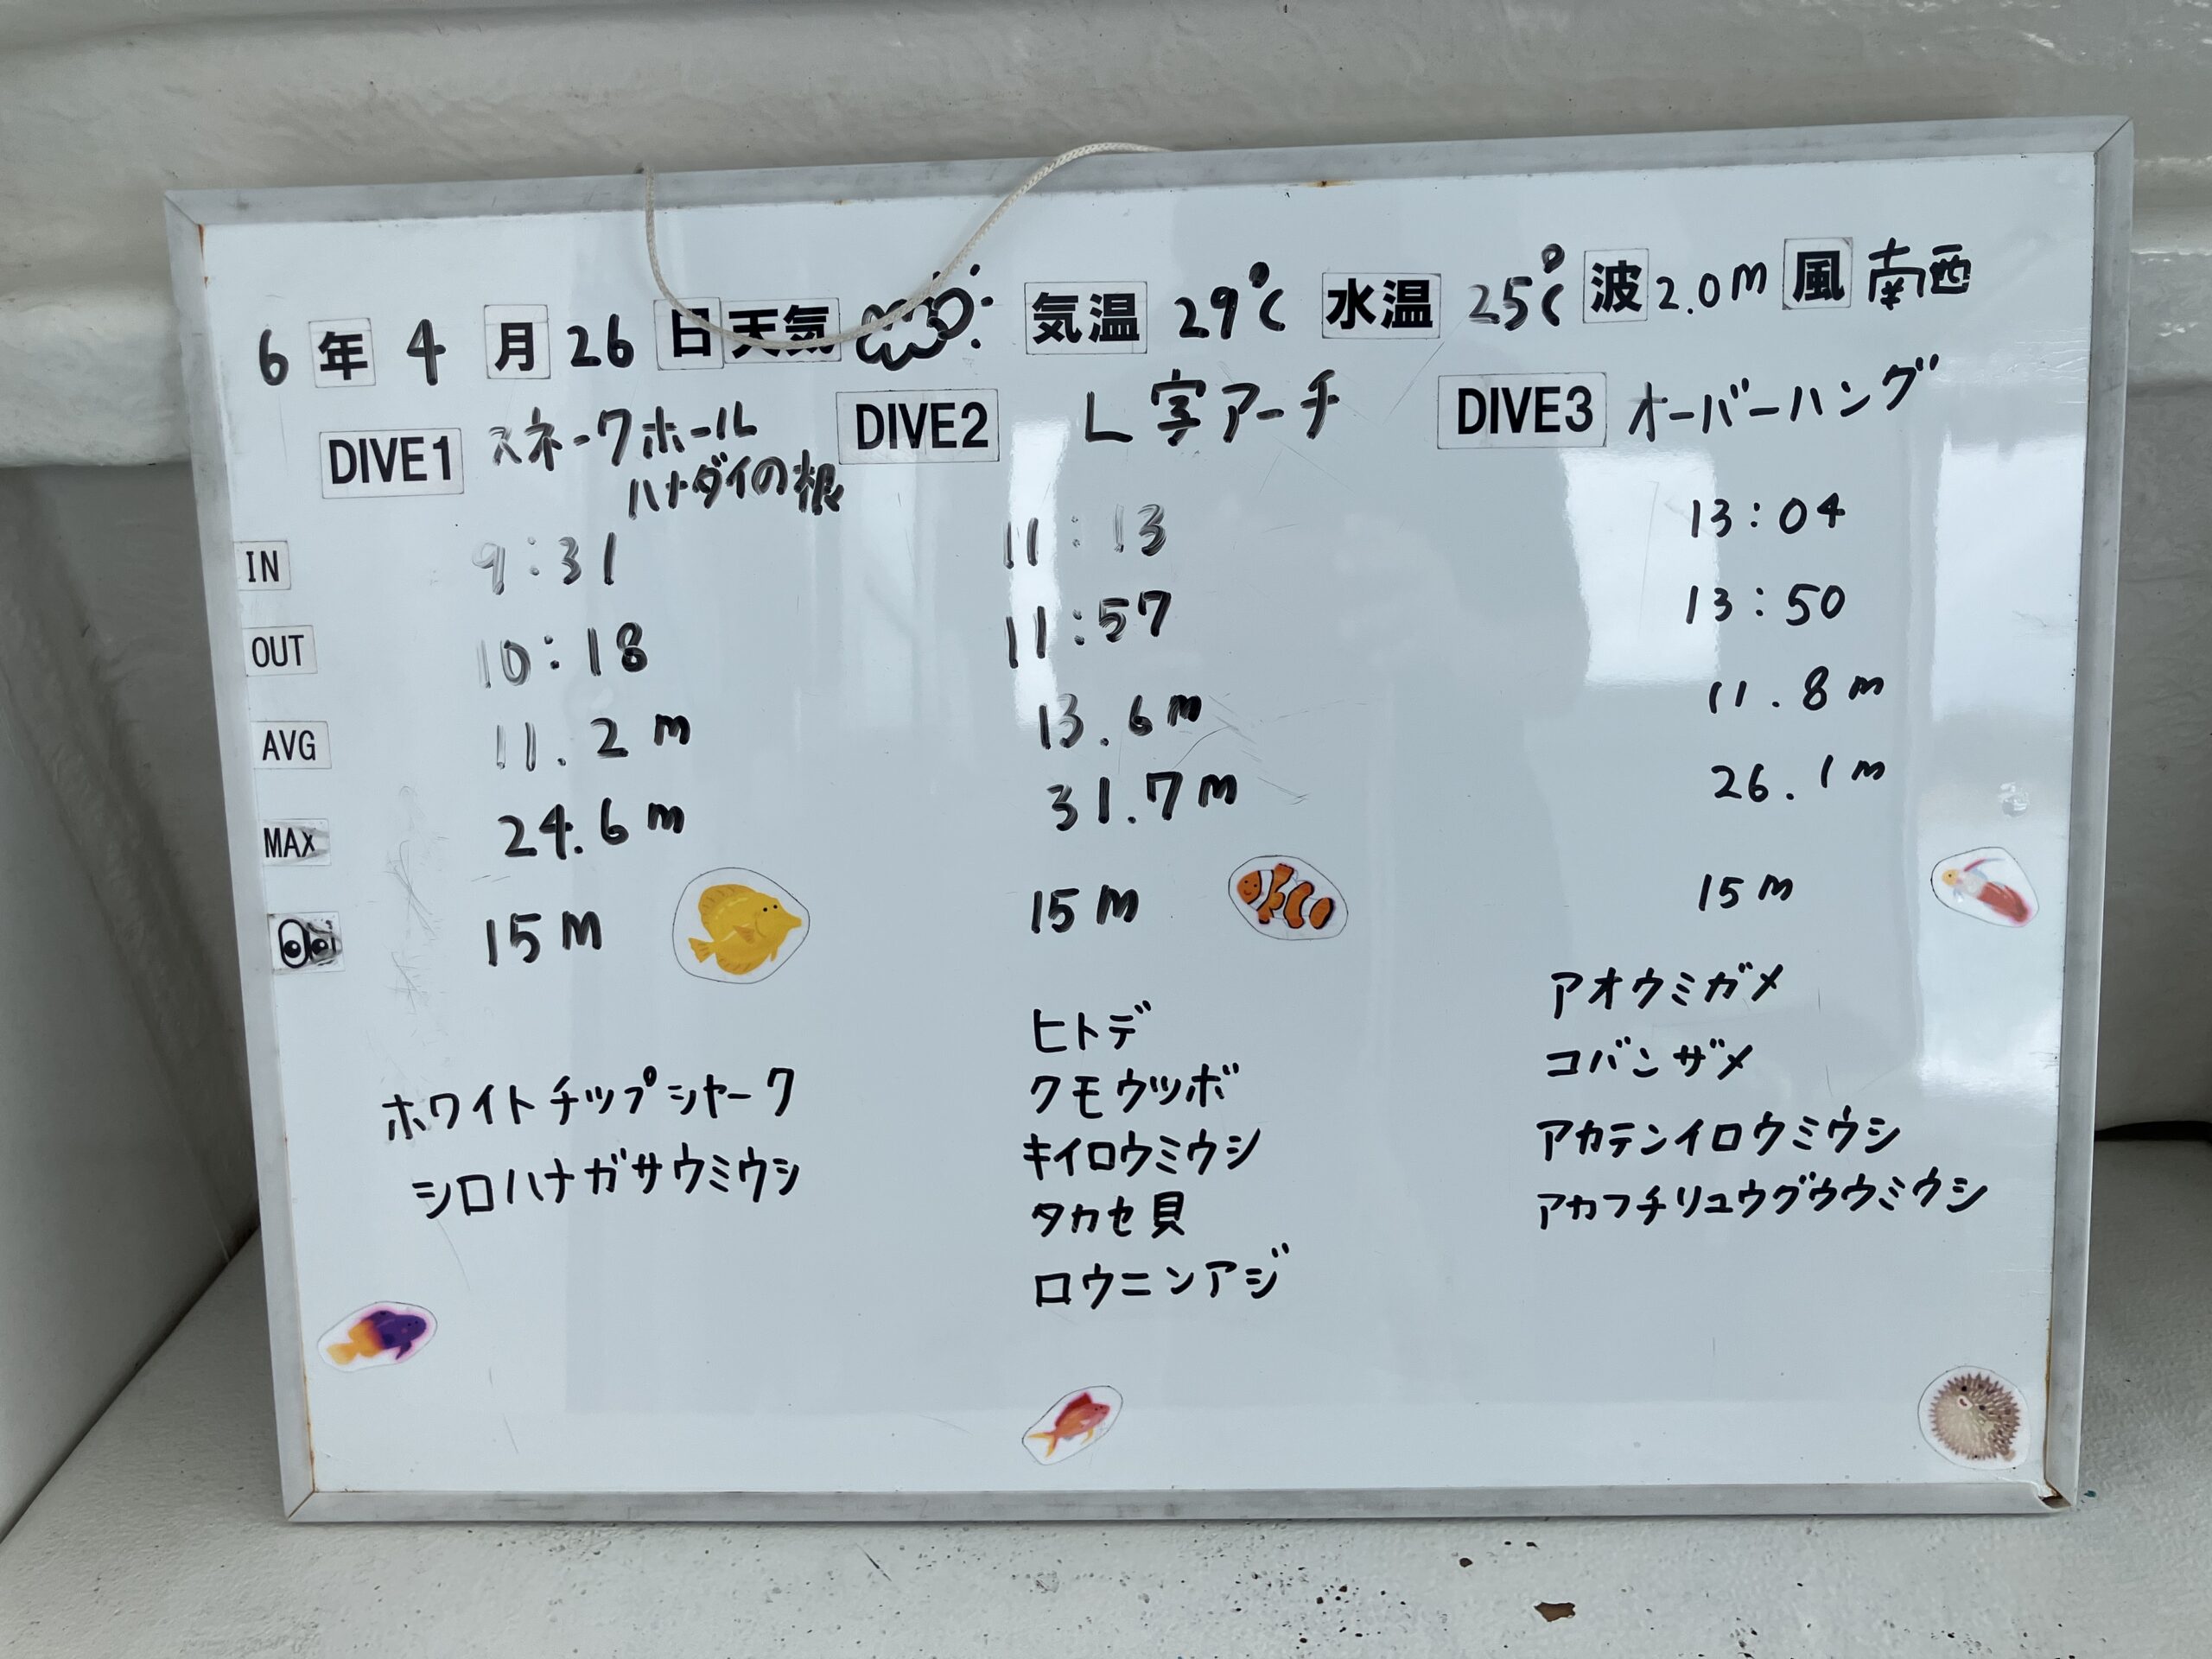 6年4月26日天気 気温29℃ 水温25℃ 波2.0m 風南西
DIVE1 スネークホール DIVE2 L字アーチ DIVE3 オーバーハング
ハナダイの根
IN 9:31 11:13 13:04
OUT 10:18 11:57 13:50
AVG 11.2m 13.6m 11.8m
MAX 24.6m 31.7m 26.1m
15m 15m 15m
ホワイトチップシャーク
シロハナガサウミウシ
ヒトデ
クモウツボ
キイロウミウシ
タカセ貝
ロウニンアジ
アオウミガメ
コバンザメ
アカテンイロウミウシ
アカフチリュウグウウミウシ